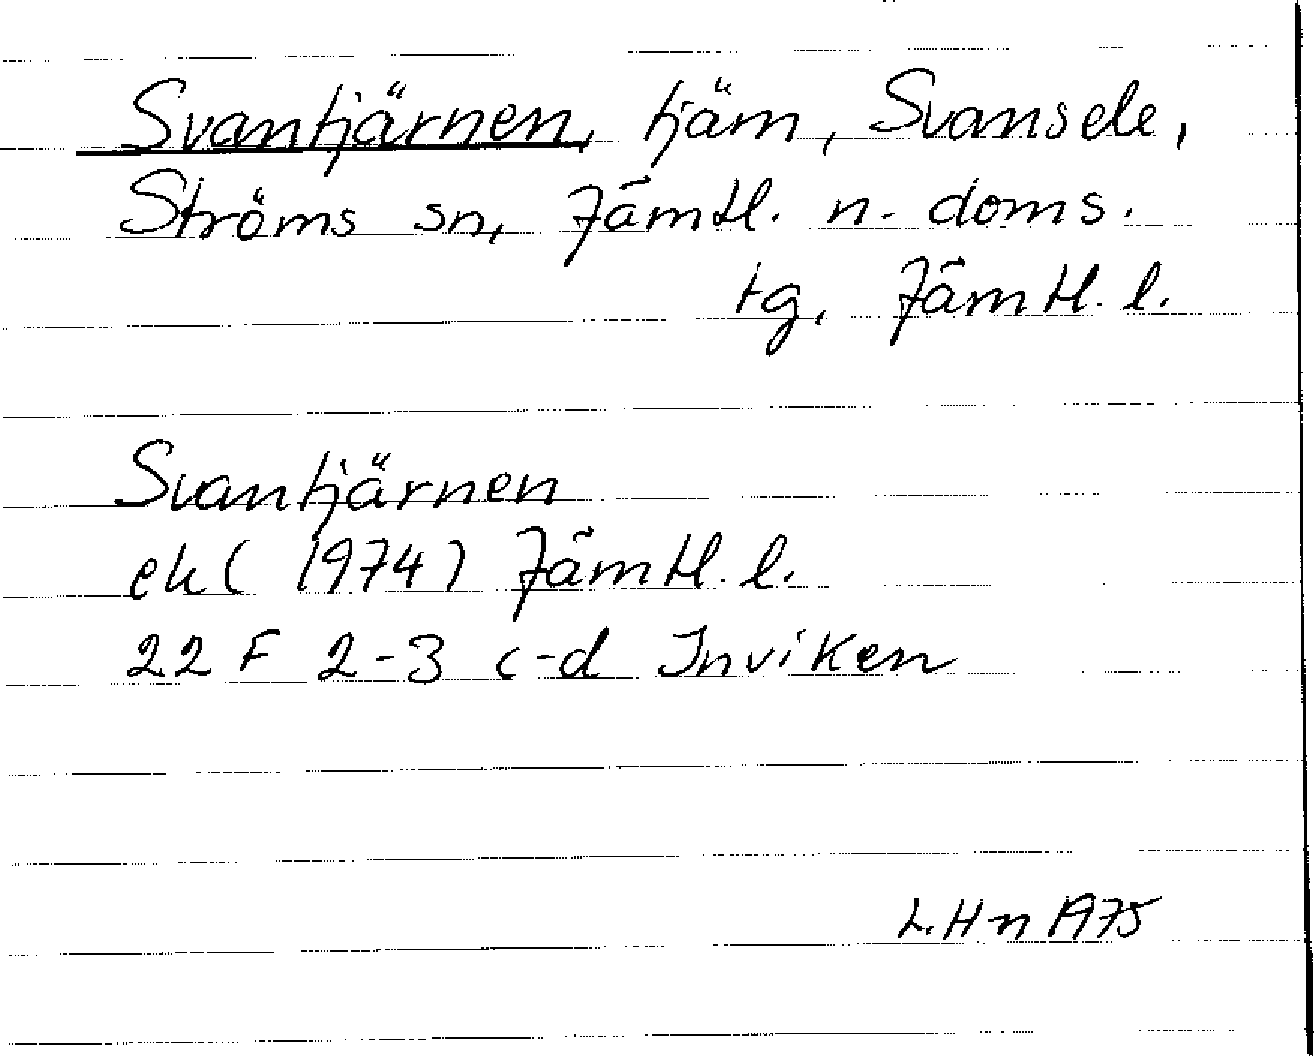 Svantjärnen, tjärn, Svansele,
Ströms sn, Jämtl. n. doms.
tg, Jämtl. l.
Svantjärnen
ek (1974) Jämtl. l.
22 F 2-3 c-d Inviken
L. H-n 1975